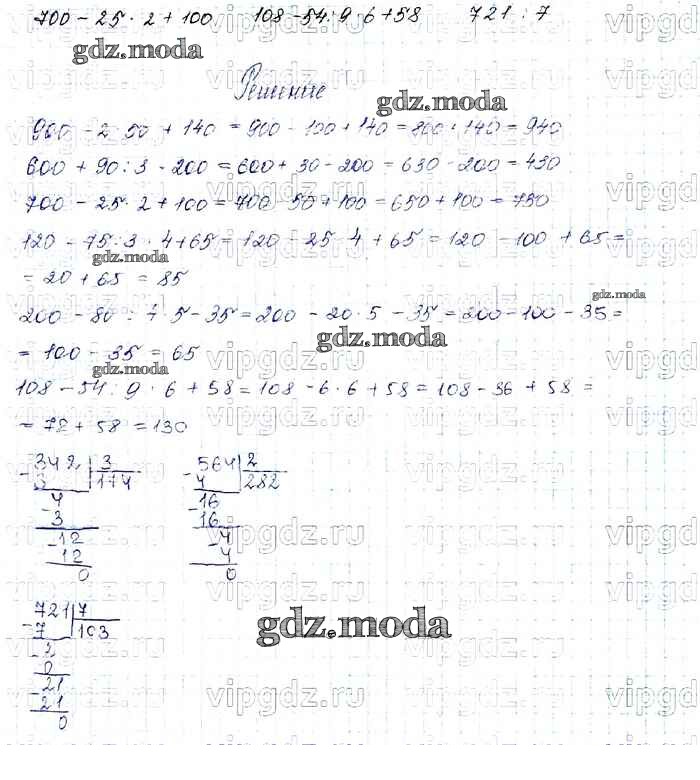 700 - 25 · 2 + 100 108 - 54 : 9 · 6 + 58 721 : 7
gdz.moda
Решение
gdz.moda
900 - 2 · 50 + 140 = 900 - 100 + 140 = 800 + 140 = 940
600 + 90 : 3 - 200 = 600 + 30 - 200 = 630 - 200 = 430
700 - 25 · 2 + 100 = 700 - 50 + 100 = 650 + 100 = 750
120 - 75 : 3 · 4 + 65 = 120 - 25 · 4 + 65 = 120 - 100 + 65 =
gdz.moda
= 20 + 65 = 85
gdz.moda
200 - 80 : 4 · 5 - 35 = 200 - 20 · 5 - 35 = 200 - 100 - 35 =
gdz.moda
= 100 - 35 = 65
gdz.moda
108 - 54 : 9 · 6 + 58 = 108 - 6 · 6 + 58 = 108 - 36 + 58 =
= 72 + 58 = 130
342 3 564 2
3 114 4 282
4 16
3 16
12 4
12 4
0 0
721 7
7 103
gdz.moda
2
0
21
21
0
vipgdz.ru